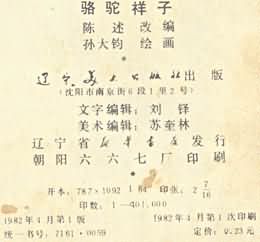 骆驼祥子
陈述改编
孙大钧 绘画
辽宁美术出版社出版
(沈阳市南京街6段1里2号)
文字编辑: 刘铎
美术编辑: 苏奎林
辽宁省新华书店发行
朝阳六六七厂印刷
开本: 787×1092 1/64 印张: 2 7/16
印数: 1—401,000
1982年4月第1版 1982年4月第1次印刷
统一书号: 7161·0059 定价: 0.23元